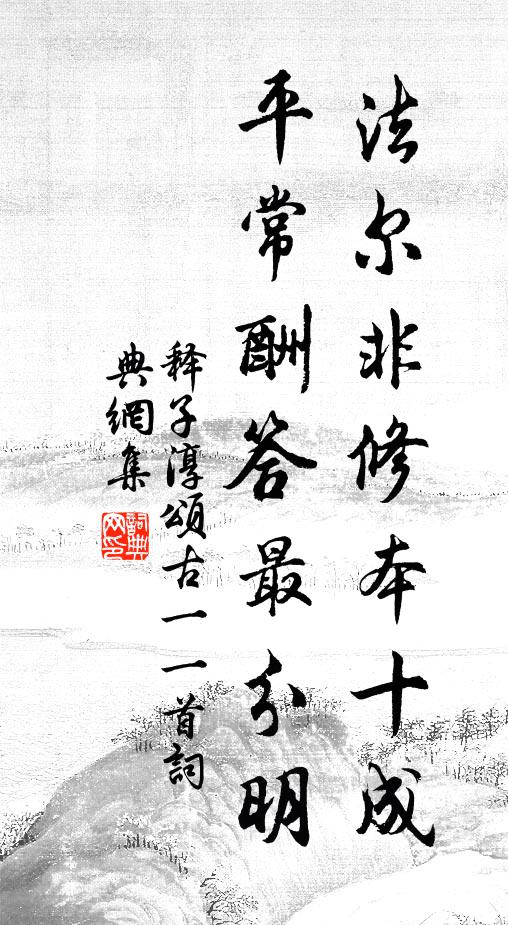 法尔非修本十成
平常酬答最分明
释子淳颂古一一首詞
典網集
詞典网印